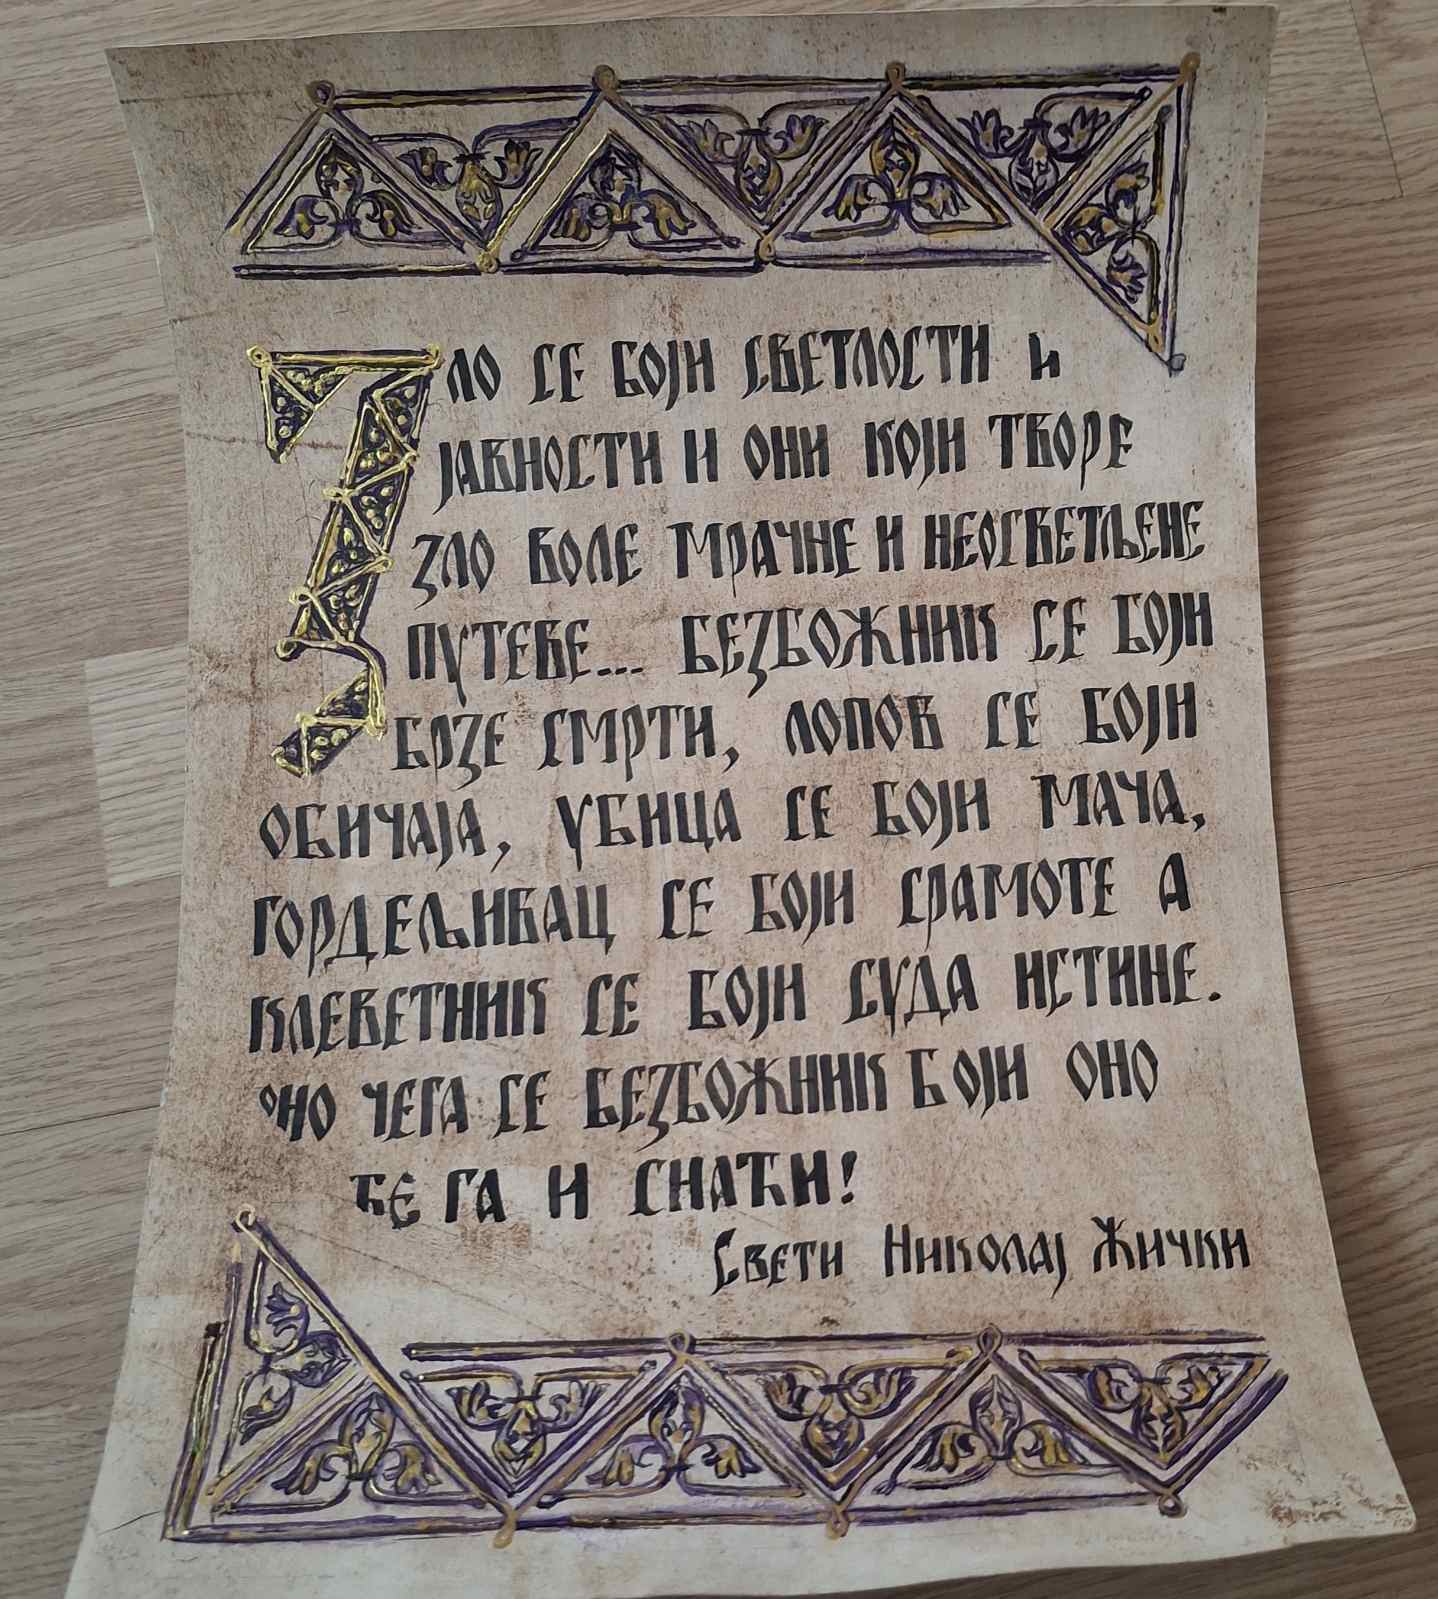 Зло се боји светлости и
јавности и они који творе
зло воле мрачне и неосветљене
путеве... Безбожник се боји
брзе смрти, лопов се боји
обичаја, убица се боји мача,
гордељивац се боји срамоте а
клеветник се боји суда истине.
оно чега се безбожник боји оно
ће га и снаћи!
Свети Николај Жички